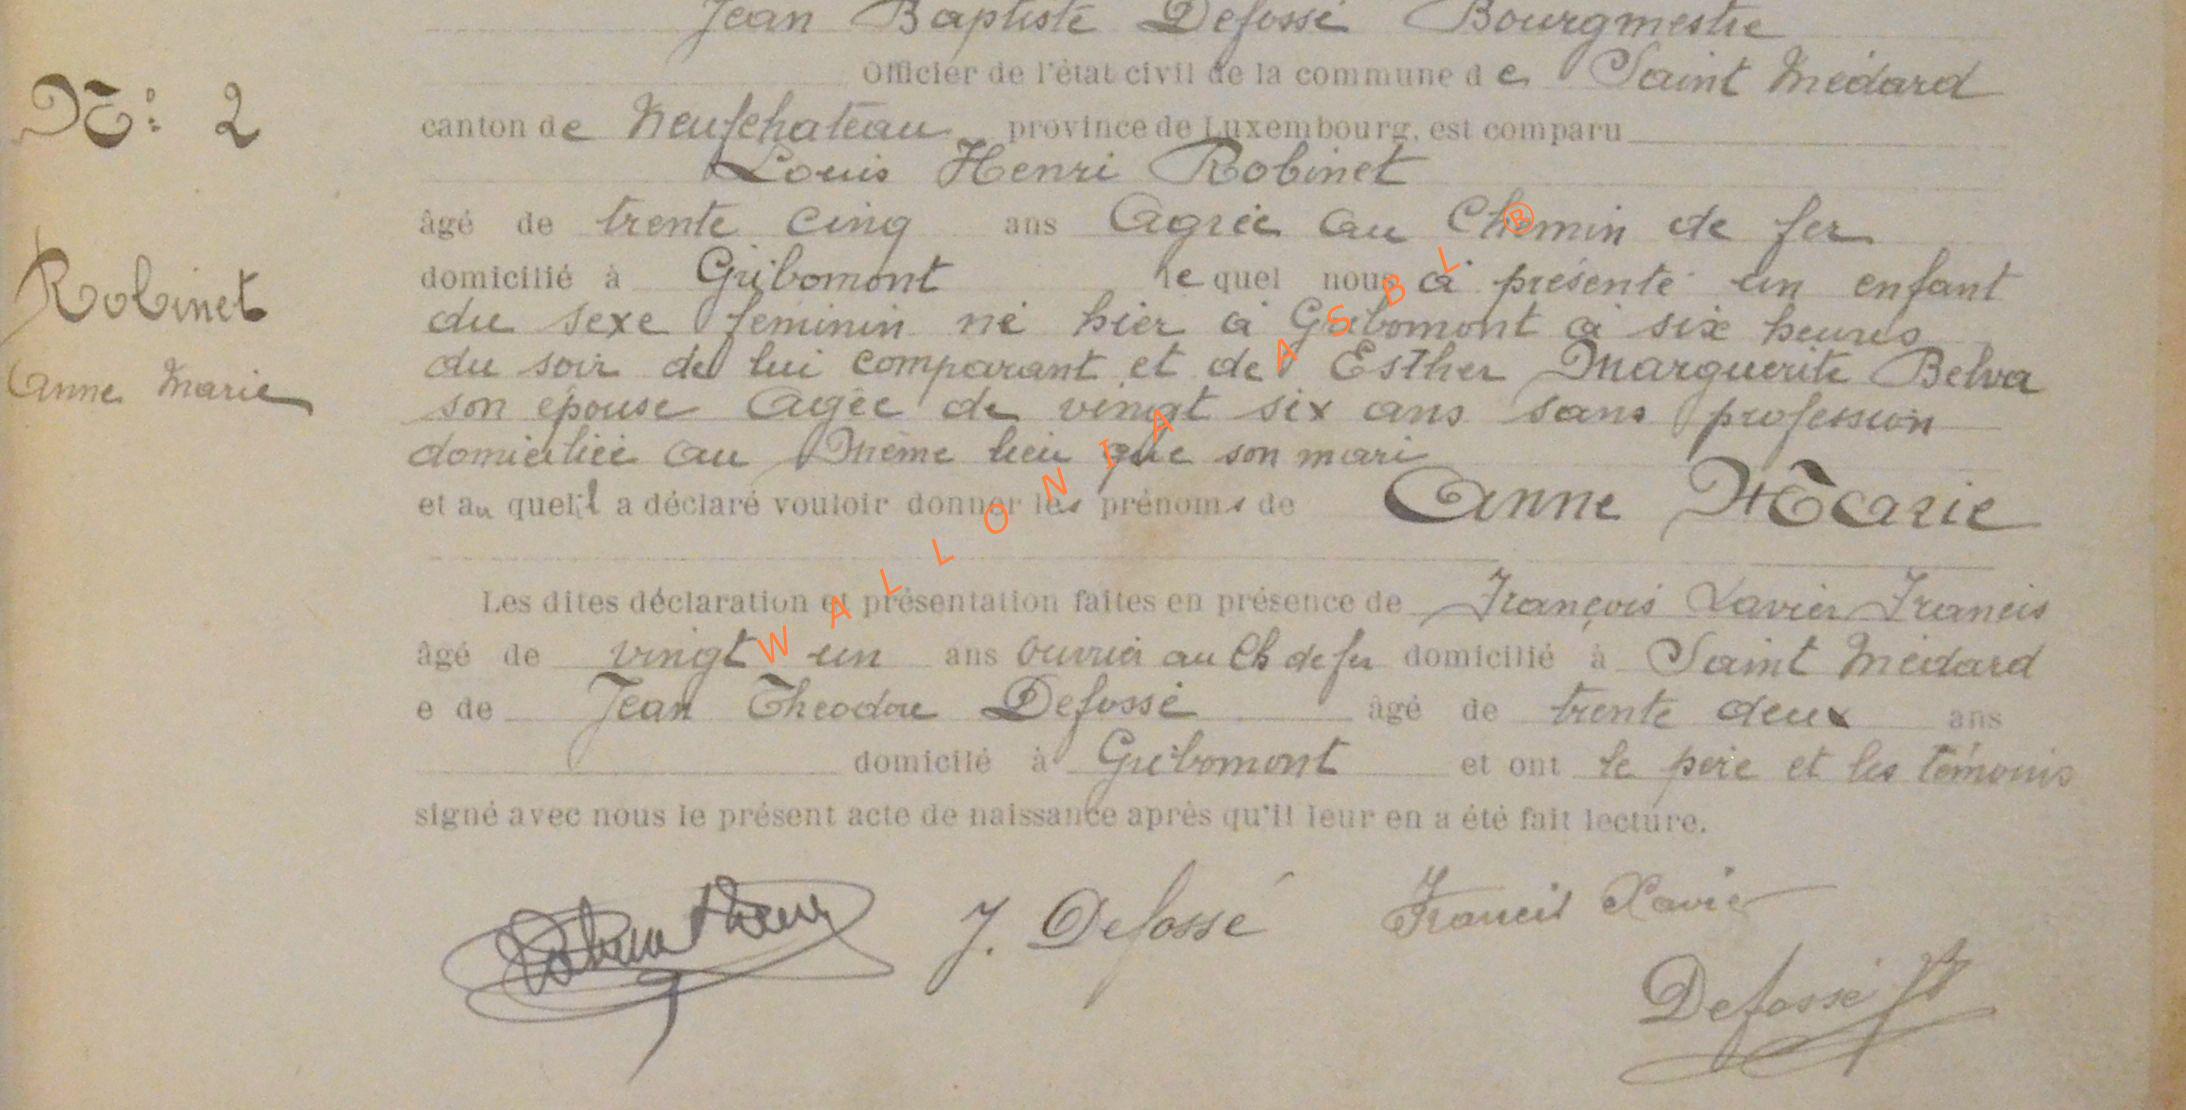 Jean Baptiste Defossé Bourgmestre
Officier de l'état civil de la commune de Saint Médard
N°: 2
canton de Neufchateau province de Luxembourg, est comparu
Louis Henri Robinet
âgé de trente cinq ans Agréé au Chemin de fer
Robinet
Anne Marie
domicilié à Gribomont le quel nous a présenté un enfant
du sexe feminin né hier à Gribomont à six heures
du soir de lui comparant et de Esther Marguerite Belva
son épouse Agée de vingt six ans sans profession
domiciliée au même lieu que son mari
et au quel il a déclaré vouloir donner les prénoms de Anne Marie
Les dites déclaration et présentation faites en présence de François Xavier Francis
âgé de vingt un ans ouvrier au Ch de fer domicilié à Saint Médard
e de Jean Théodore Defossé âgé de trente deux ans
domicilé à Gribomont et ont le père et les témoins
signé avec nous le présent acte de naissance après qu'il leur en a été fait lecture.
J. Defossé Francis Xavier
Defossé
WALLONIA ASBL ®